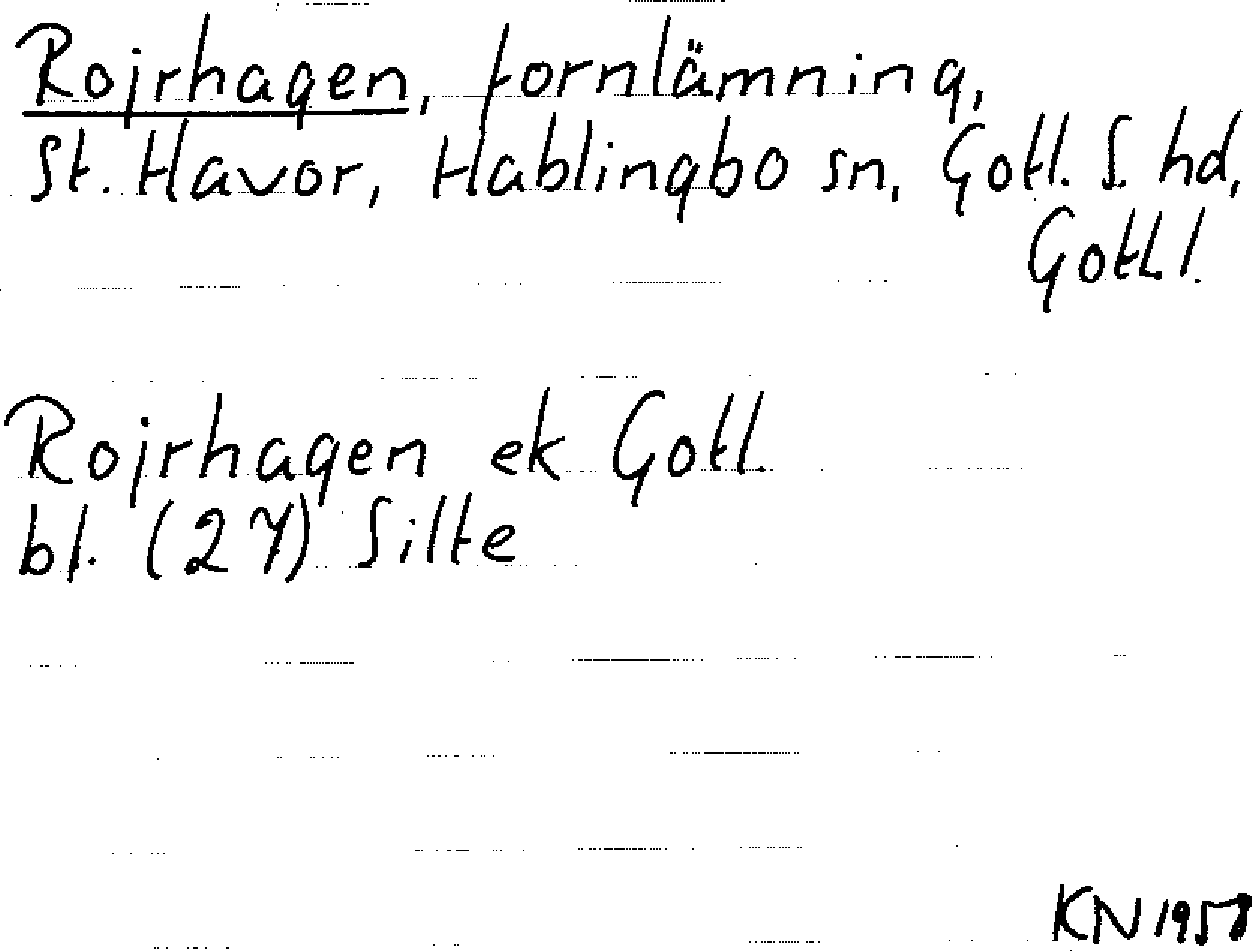 Rojrhagen, fornlämning,
St. Havor, Hablingbo sn, Gotl. S. hd,
Gotl.l.
Rojrhagen ek Gotl.
bl. (27) Silte
KN 1958